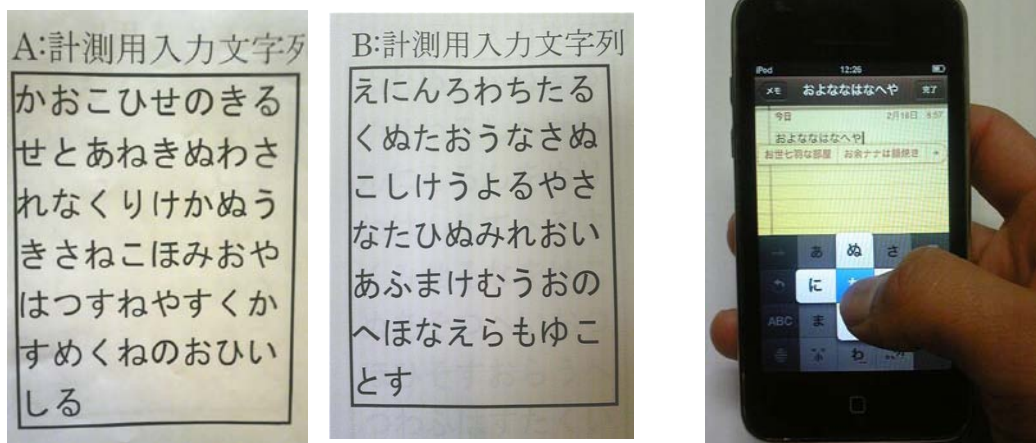 A:計測用入力文字列
かおこひせのきる
せとあねきぬわさ
れなくりけかぬう
きさねこほみおや
はつすねやすくか
すめくねのおひい
しる
B:計測用入力文字列
えにんろわちたる
くぬたおうなさぬ
こしけうよるやさ
なたひぬみれおい
あふまけむうおの
へほなえらもゆこ
とす
iPod 12:26
メモ およななはなへや 完了
今日 2月16日 8:57
およななはなへや
お世七羽な部屋 お余ナナは鍋焼き
あ ぬ さ
に
ABC ま
わ